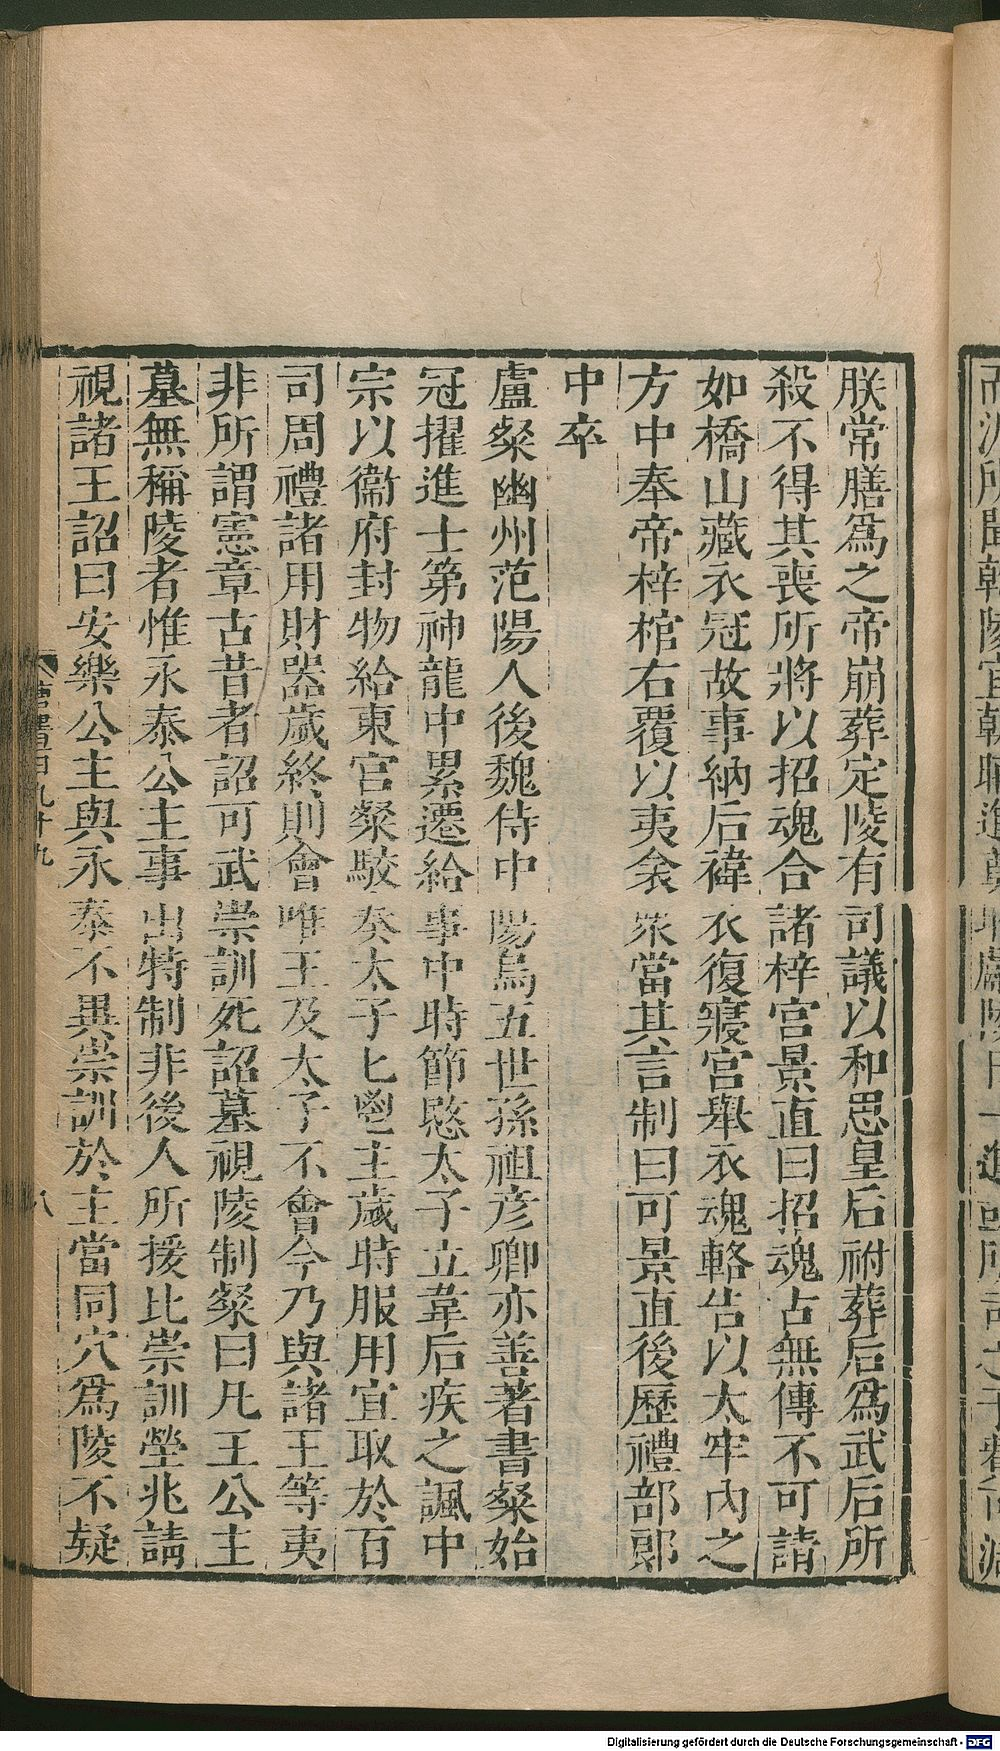 朕常膳爲之帝崩葬定陵有司議以和思皇后祔葬后爲武后所
殺不得其喪所將以招魂合諸梓宮景直曰招魂古無傳不可請
如橋山藏衣冠故事納后褘衣復寢宮舉衣魂輅告以太牢内之
方中奉帝梓棺右覆以夷衾衆當其言制曰可景直後歷禮部郞
中卒
盧粲幽州范陽人後魏侍中陽烏五世孫祖彦卿亦善著書粲始
冠擢進士第神龍中累遷給事中時節愍太子立韋后疾之諷中
宗以衞府封物給東宮粲駮奏太子匕鬯主歲時服用宜取於百
司周禮諸用財器歲終則會唯王及太子不會今乃與諸王等夷
非所謂憲章古昔者詔可武崇訓死詔墓視陵制粲曰凡王公主
墓無稱陵者惟永泰公主事出特制非後人所援比崇訓塋兆請
視諸王詔曰安樂公主與永泰不異崇訓於主當同穴爲陵不疑
唐書百九十九
八
Digitalisierung gefördert durch die Deutsche Forschungsgemeinschaft - DFG